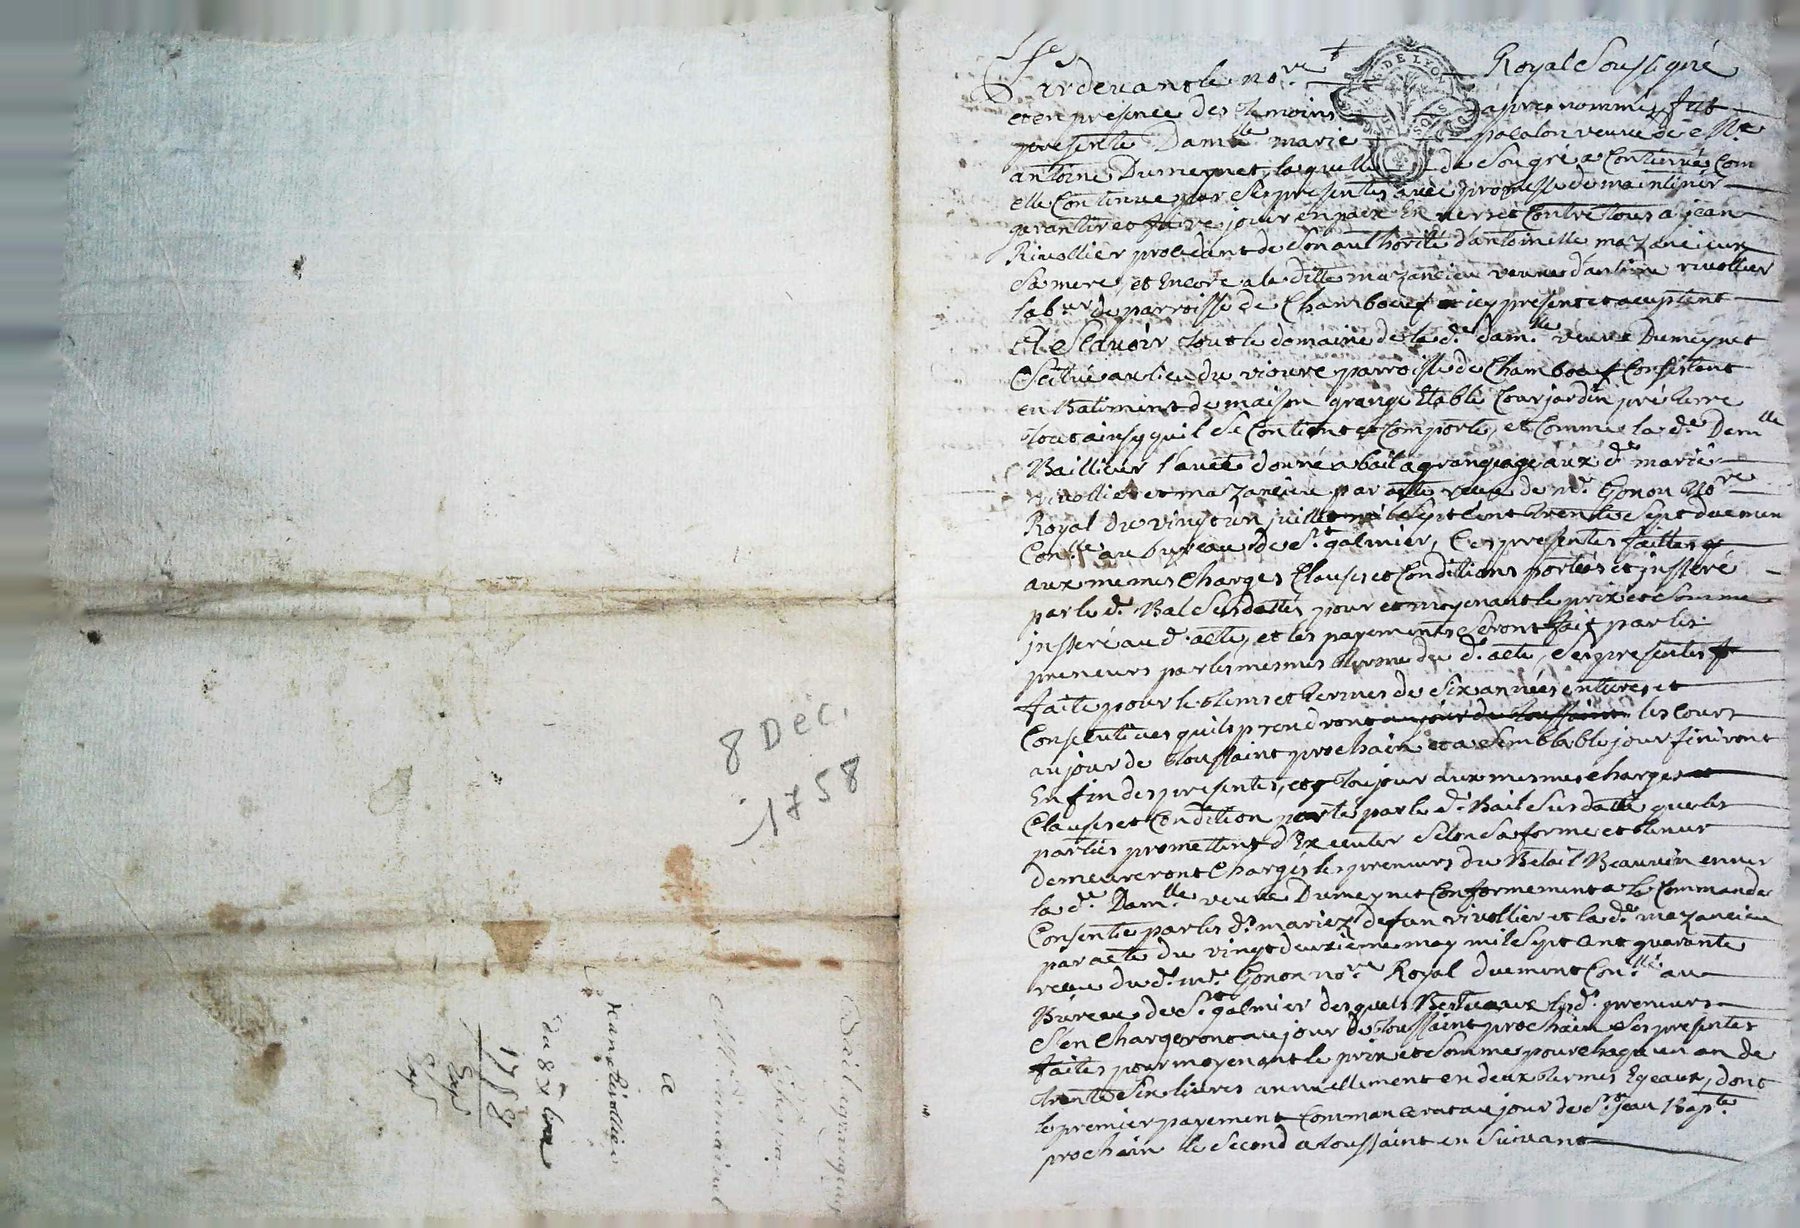 8 Dec.
1758
Bail a grangeage
a
Jean Rivollier
du 8 Xbre
1758
Expé
Expé
DE LYON
Pardevant le nore Royal Soussigné
et en presence des temoins apres nommes fut
presente Damlle marie palalon veuve de Mre
antoine Dumeynet, laquelle de Son gré a Continué Com
elle Continue par Ses presentes avec promesse de maintenir
garantir et faire jouir en paix Envers et Contre tous a jean
Rivollier procedant de Son authorité d'antoinette mazancieux
Sa mere, et Encore a la ditte mazancieu veuve d'antoine rivollier
labr de parroisse de Chamboeuf icy present et aceptent
A Sçavoir tout le domaine de la de damlle veuve Dumeynet
Scitué au lieu du vioure parroisse de Chamboeuf Consistent
en Batiment de maison grange Etable Cour jardin pré terre
tout ainsy quil Se Contient et Comporte, et Comme la de Damlle
Bailleur l'avet donné a bail a grangeage aux ds mariés
rivollier et mazancieu par acte receu de me Gonon Nore
Royal du vingt un juillet mil Sept Cent trente Sept duemen
Conllé au bureau de St galmier, Ses presentes faittes
aux memes Charges Clauses et Conditions portées et jnsseré
par le d. Bal Susdattés, pour et moyenant le prix et Somme
jnsseré au d. acte, et les payements Seront fait par les
preneurs par les mesmes terme du d. acte, Ses presentes
faite pour le tems et termes de Six années entieres et
Consecutives quils prendront au jour de toussaint les Cours
au jour de toussaint prochain et a Semblable jour finiront
En fin des presentes, et toujour aux mesmes Charges
Clauses et Condition porté par le d. Bail Susdatté que les
parties promettent d'Executer Selon Sa forme et teneur
demeureront Chargés les preneurs du Betail Beauvin envers
la de Damlle veuve Dumeynet Conformement a la Commande
Consentie par les ds mariez defun rivollier et la de mazancieu
par acte du vingt deuxieme may mil Sept Cent quarante
receu du d. me Gonon nore Royal duement Conllé au
Bureau de St galmier desquels Bestieaux lesd. preneurs
S'en Chargeront au jour de toussaint prochain Ses presentes
faites pour moyenant le prix et Somme pour chaque un an de
trente Six livres annuellement en deux termes Egeaux, dont
le premier payement Commancerat au jour de St jean Bapte
prochain le Second a toussaint en Suivant